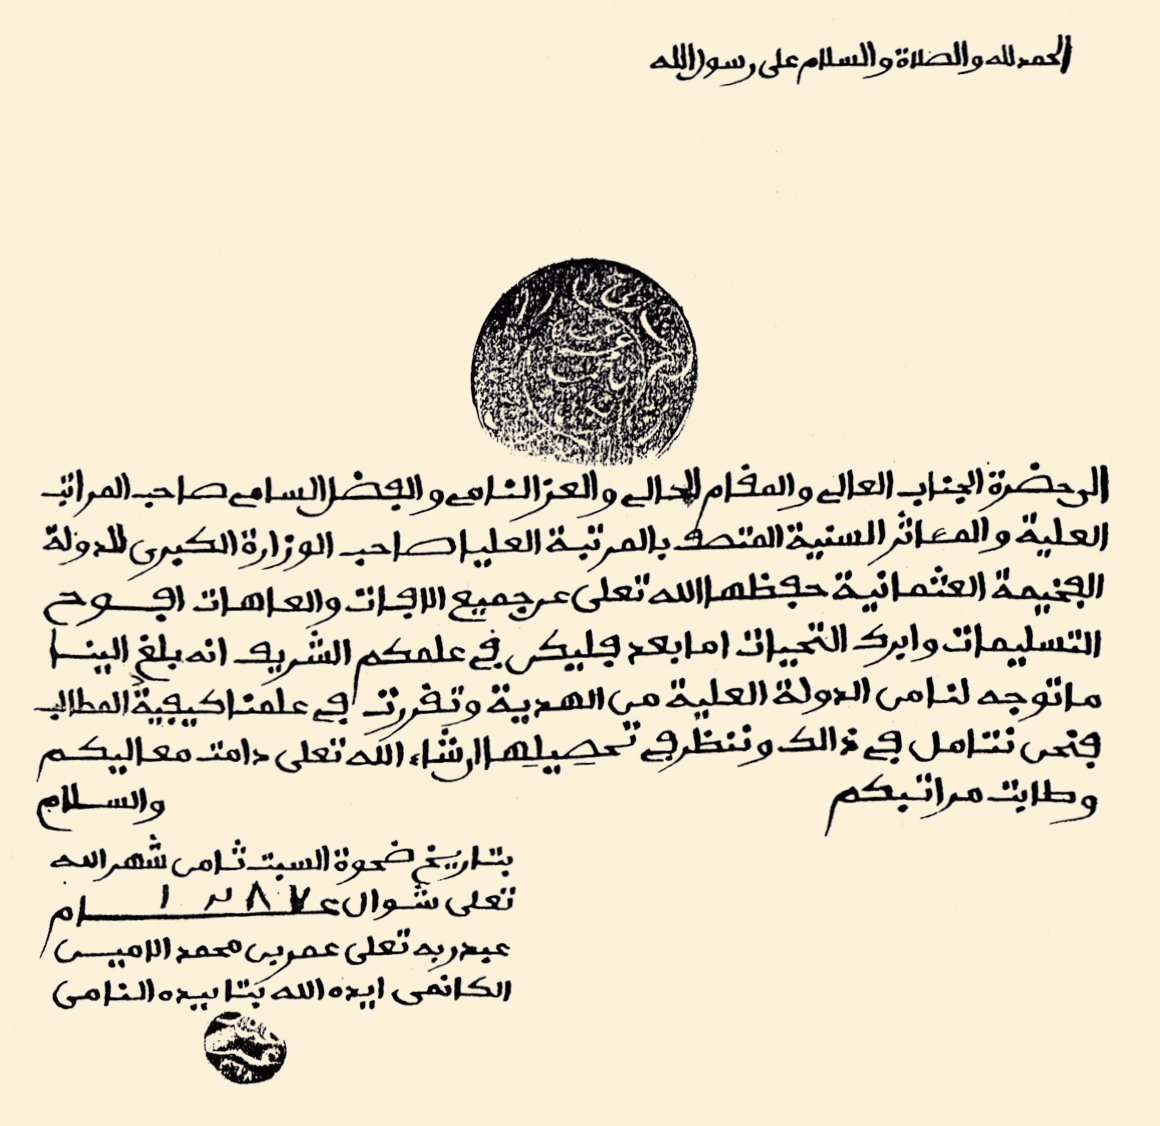 الحمد لله والصلاة والسلام على رسول الله
الى حضرة الجناب العالي والمقام الحالي والعز النامي والفضل السامي صاحب المراتب
العلية والمئاثر السنية المتصف بالمرتبة العليا صاحب الوزارة الكبرى للدولة
الفخيمة العثمانية حفظها الله تعلى عن جميع الافات والعاهات افوح
التسليمات وابرك التحيات اما بعد فليكن في علمكم الشريف انه بلغ الينا
ما توجه لنا من الدولة العلية من الهدية وتقررت في علمنا كيفية المطالب
فنحن نتامل في ذالك وننظر في تحصيلها ان شاء الله تعلى دامت معاليكم
وطابت مراتبكم والسلام
بتاريخ ضحوة السبت ثامن شهر الله
تعلى شوال عام ١٢٨٧
عبد ربه تعلى عمر بن محمد الامين
الكانمي ايده الله بتاييده النامي